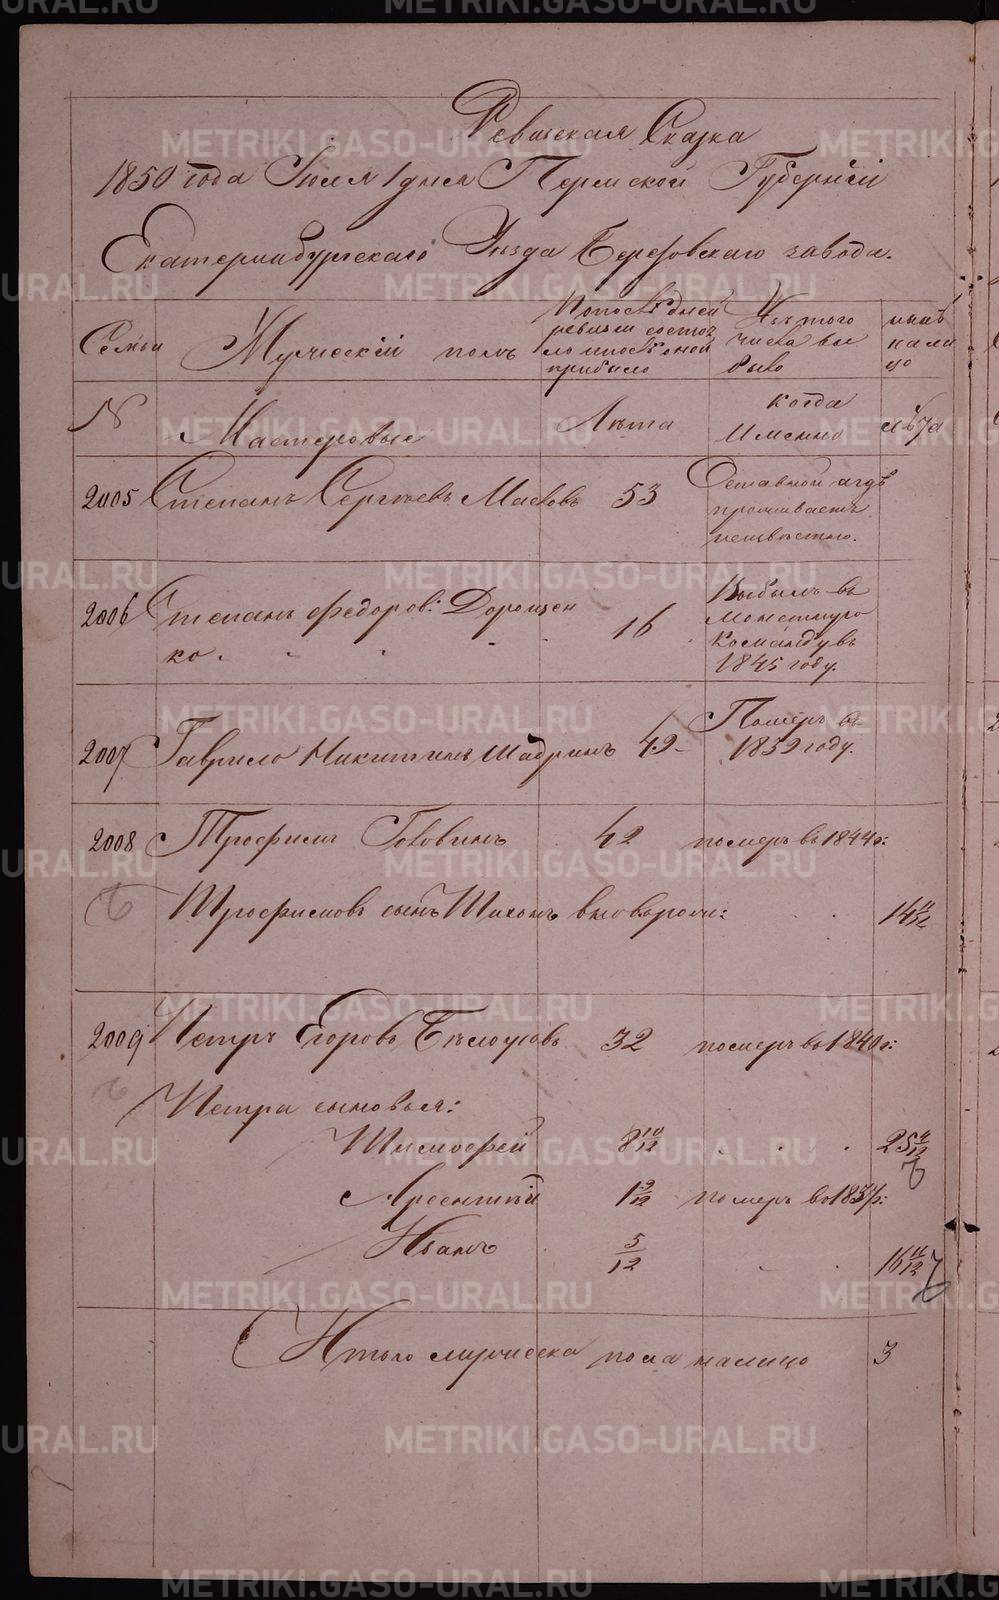 Ревизская Сказка
1850 года Июля 1 дня Пермской Губернiи
Екатеринбургскаго Уезда Березовскаго завода.
Семьи
Мужескiй полъ
По последней ревизiи состояло и после оной прибыло
Изъ того числа выбыло
ныне на лицо
№
Мастеровые
Лета
когда Именно
лета
2005 Степанъ Сергеевъ Масловъ 53 Отставной и где проживаетъ неизвестно.
2006 Степанъ Федоров: Дорощенко. 16 Выбылъ въ Монетную команду въ 1845 году.
2007 Гаврило Никитинъ Шадринъ 49 Померъ въ 1839 году.
2008 Трофимъ Головинъ 42 померъ въ 1844 г:
Трофимовъ сынъ Тихонъ вновь рожд: 14 11/12
2009 Петръ Егоровъ Белоусовъ 32 померъ въ 1840 г:
Петра сыновья:
Тимофей 8 10/12 25 4/12
Арсентiй 1 9/12 померъ въ 1837 г:
Иванъ 5/12 16 11/12
Итого мужеска пола налицо 3
METRIKI.GASO-URAL.RU